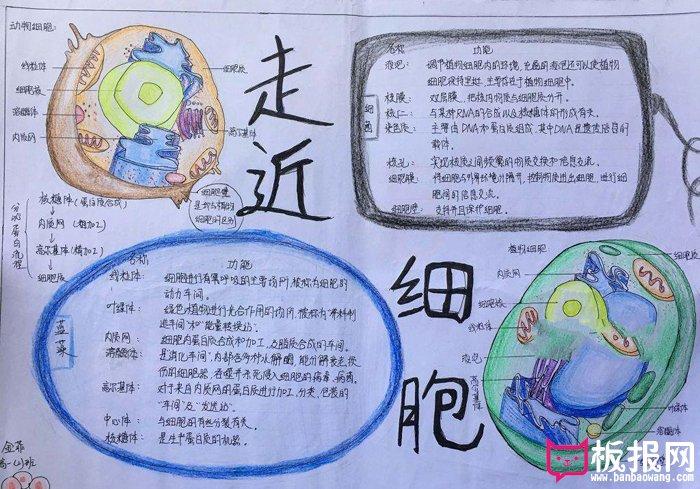 动物细胞:
线粒体
细胞核
溶酶体
内质网
细胞膜
高尔基体
细胞壁
是动与植物
细胞的区别
核糖体(蛋白质合成)
内质网(粗加工)
高尔基体(精加工)
细胞膜
走近
细胞
名称 功能
液泡: 调节植物细胞内的环境,充盈的液泡还可以使植物
细胞保持坚挺,主要存在于植物细胞中。
核膜: 双层膜,把核内物质与细胞质分开。
核仁: 与某种RNA的合成以及核糖体的形成有关。
染色质: 主要由DNA和蛋白质组成,其中DNA是遗传信息的
载体。
核孔: 实现核质之间频繁的物质交换和信息交流。
细胞膜: 将细胞与外界环境分隔开,控制物质进出细胞,进行细
胞间的信息交流。
细胞壁: 支持并且保护细胞。
名称 功能
线粒体: 细胞进行有氧呼吸的主要场所,被称为细胞的
动力车间。
叶绿体: 绿色植物进行光合作用的场所,被称为"养料制
造车间"和"能量转换站"。
内质网: 细胞内蛋白质合成和加工,及脂质合成的车间。
溶酶体: 是"消化车间",内部含多种水解酶,能分解衰老,损
伤的细胞器,吞噬并杀死侵入细胞的病毒,病菌。
高尔基体: 对于来自内质网的蛋白质进行加工,分类,包装的
"车间"及"发送站"。
中心体: 与细胞的有丝分裂有关。
核糖体: 是生产蛋白质的机器。
植物细胞
内质网
细胞核
线粒体
液泡
高尔基体
叶绿体
溶酶体
板报网
www.banbaowang.com